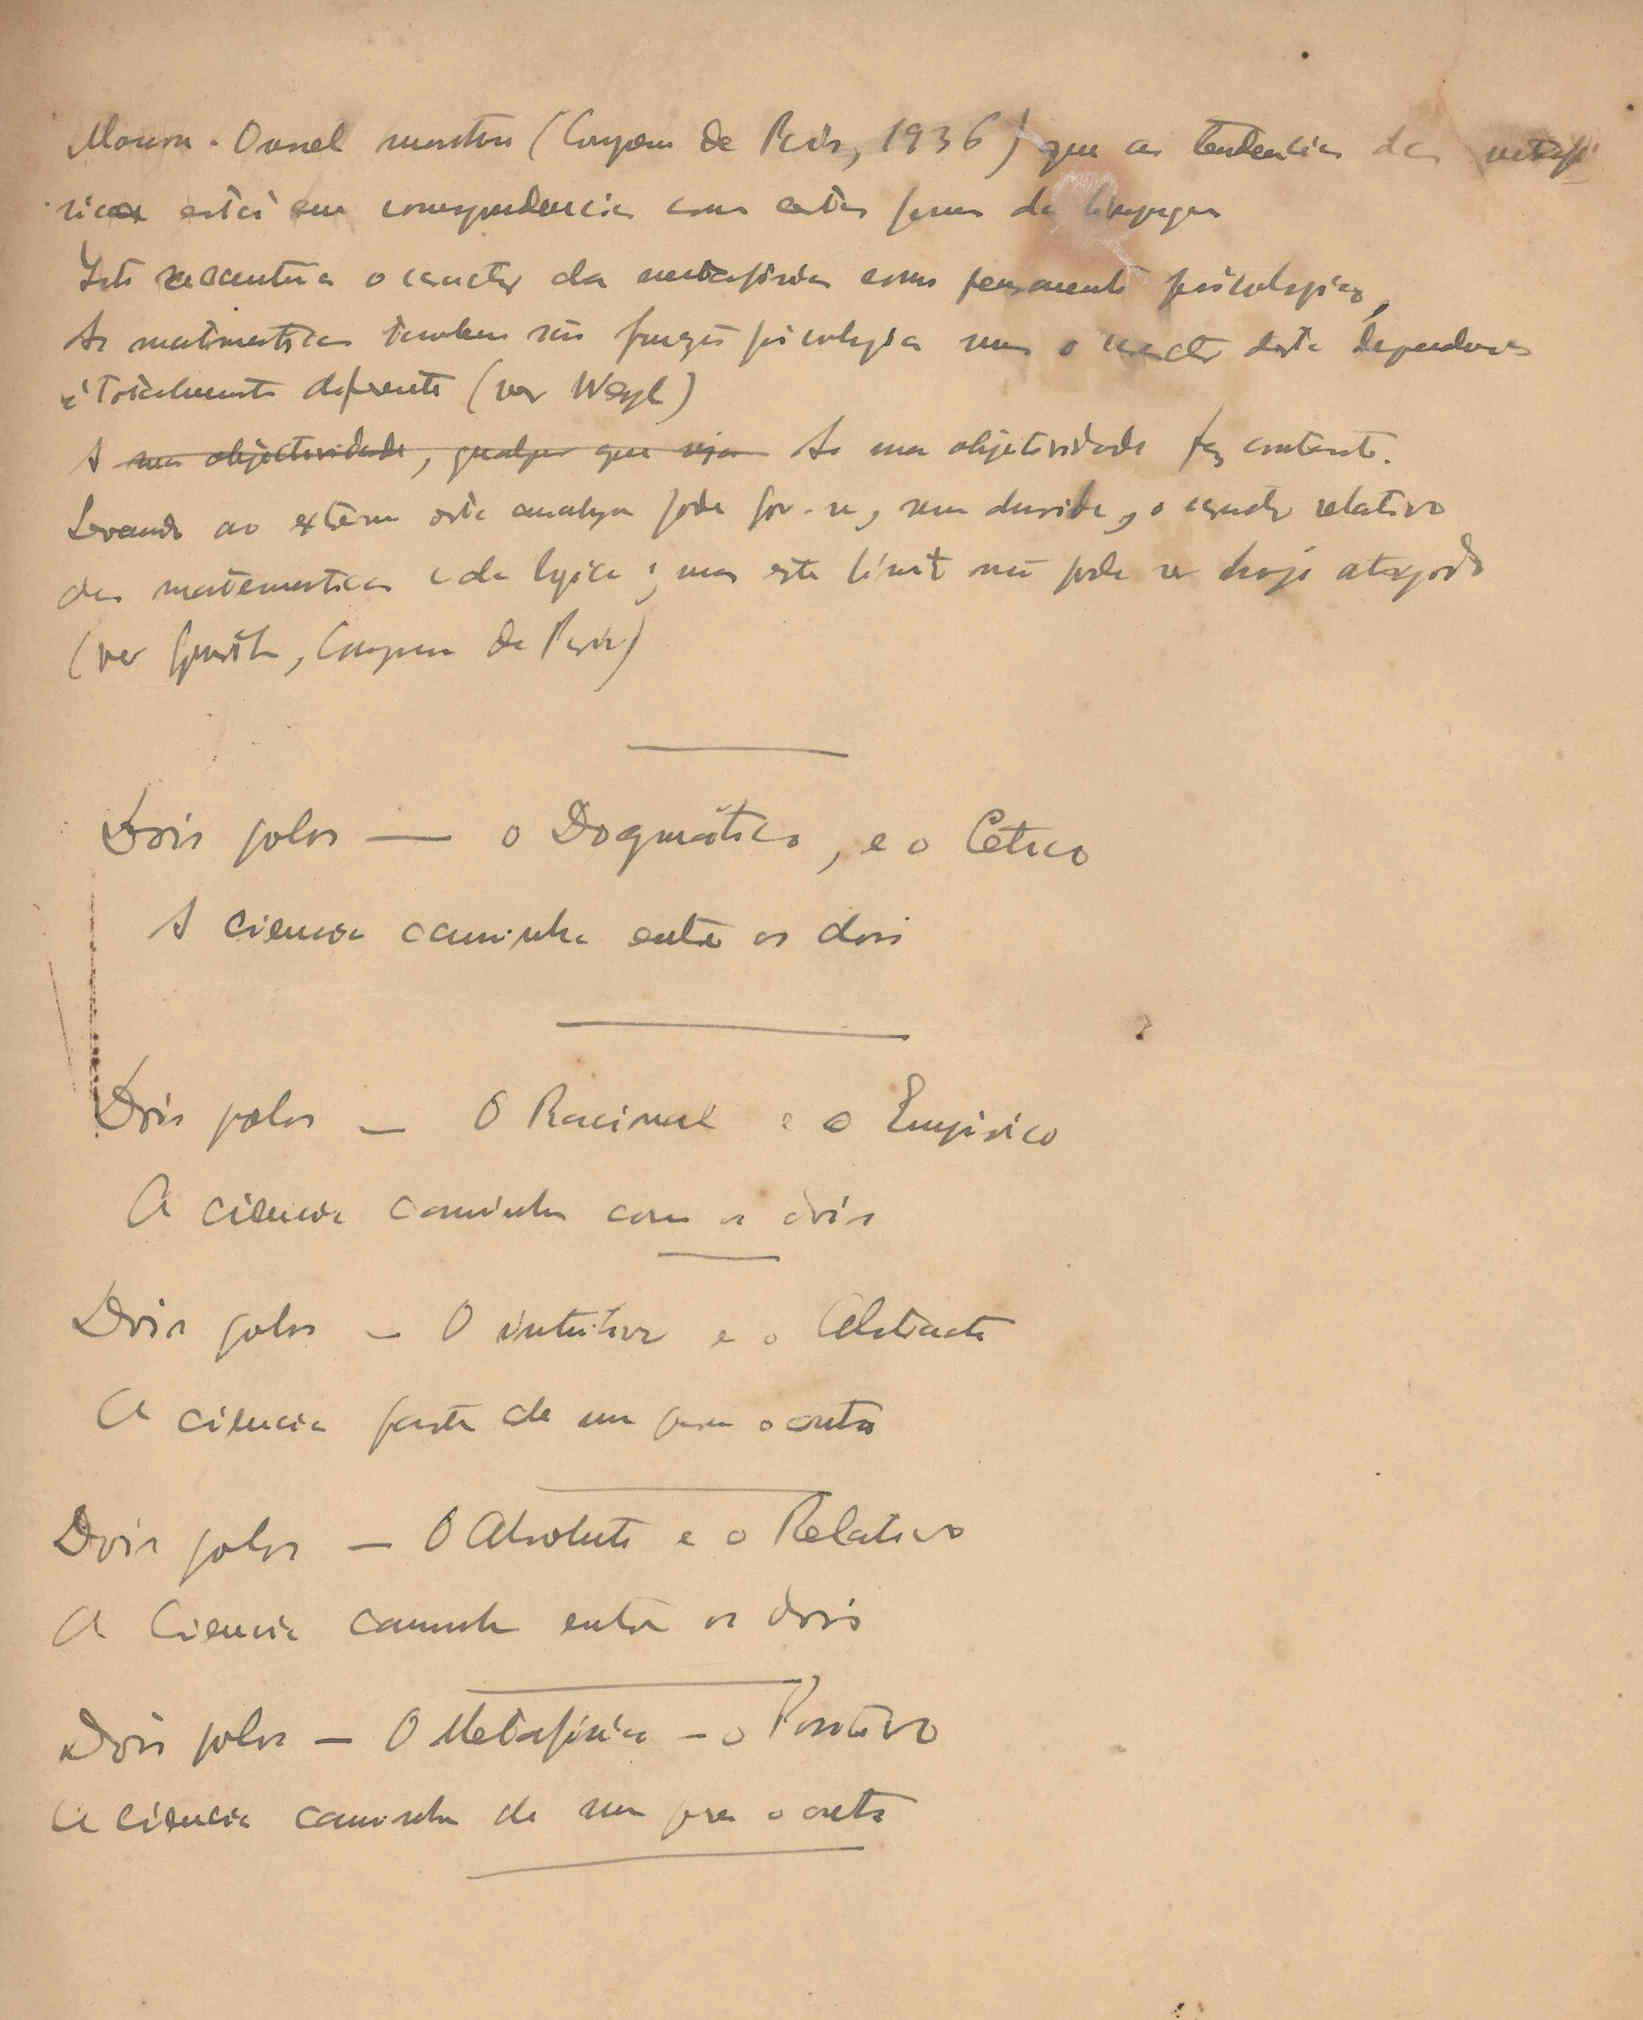 mostra (Congresso de Paris, 1936) que as tendencias da metafi
sica está em correspondencia com certas formas da linguagem
Isto o caracter da metafisica como pensamento psicologico,
As matematicas tambem são psicologica mas o caracter desta dependencia
é totalmente diferente (ver Weyl)
A sua objectividade, qualquer que seja As sua objetividade faz contraste.
Levando ao extremo esta analyse pode por-se, sem duvida, o caracter relativo
das matematicas e da logica; mas este limite não pode ser hoje atingido
(ver , Congresso de Paris)
Dois polos — o Dogmático, e o Cetico
A ciencia caminha entre os dois
Dois polos — O Racional e o Empirico
A ciencia caminha com os dois
Dois polos — O intuitivo e o Abstracto
A ciencia parte de um para o outro
Dois polos — O Absoluto e o Relativo
A Ciencia caminha entre os dois
Dois polos — O Metafisico — o Positivo
A ciencia caminha de um para o outro